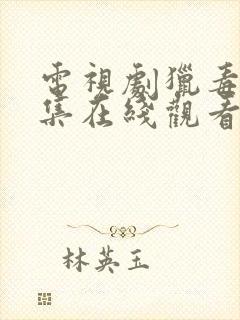 電視劇獵毒
集在綫觀看
林英玉